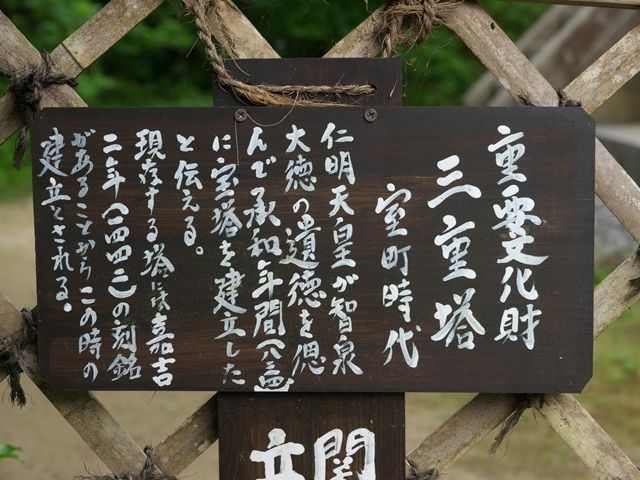 重要文化財
三重塔
室町時代
仁明天皇が智泉
大徳の遺徳を偲
んで承和年間(八三四)
に宝塔を建立した
と伝える。
現存する塔には嘉吉
二年(一四四二)の刻銘
があることからこの時の
建立とされる。
関